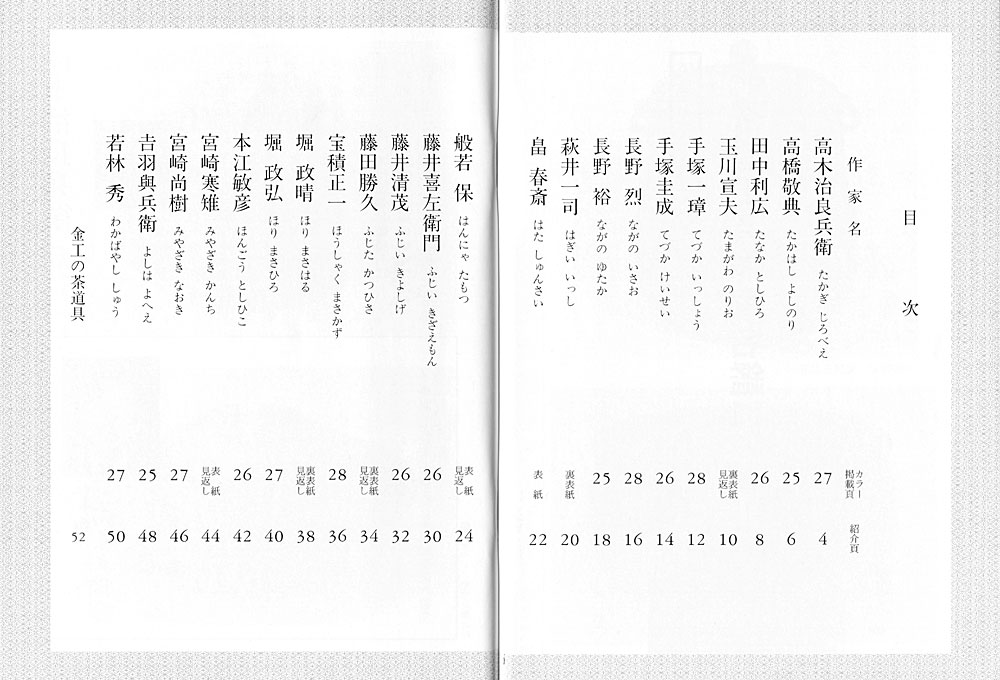 目次
作家名 カラー掲載頁 紹介頁
高木治良兵衛 たかぎ じろべえ 27 4
高橋敬典 たかはし よしのり 25 6
田中利広 たなか としひろ 26 8
玉川宣夫 たまがわ のりお 裏表紙見返し 10
手塚一璋 てづか いっしょう 28 12
手塚圭成 てづか けいせい 26 14
長野 烈 ながの いさお 28 16
長野 裕 ながの ゆたか 25 18
萩井一司 はぎい いっし 裏表紙 20
畠 春斎 はた しゅんさい 表紙 22
般若 保 はんにゃ たもつ 表紙見返し 24
藤井喜左衛門 ふじい きざえもん 26 30
藤井清茂 ふじい きよしげ 26 32
藤田勝久 ふじた かつひさ 裏表紙見返し 34
宝積正一 ほうしゃく まさかず 28 36
堀 政晴 ほり まさはる 裏表紙見返し 38
堀 政弘 ほり まさひろ 27 40
本江敏彦 ほんごう としひこ 26 42
宮崎寒雉 みやざき かんち 表紙見返し 44
宮崎尚樹 みやざき なおき 27 46
𠮷羽與兵衛 よしは よへえ 25 48
若林 秀 わかばやし しゅう 27 50
金工の茶道具 52
1